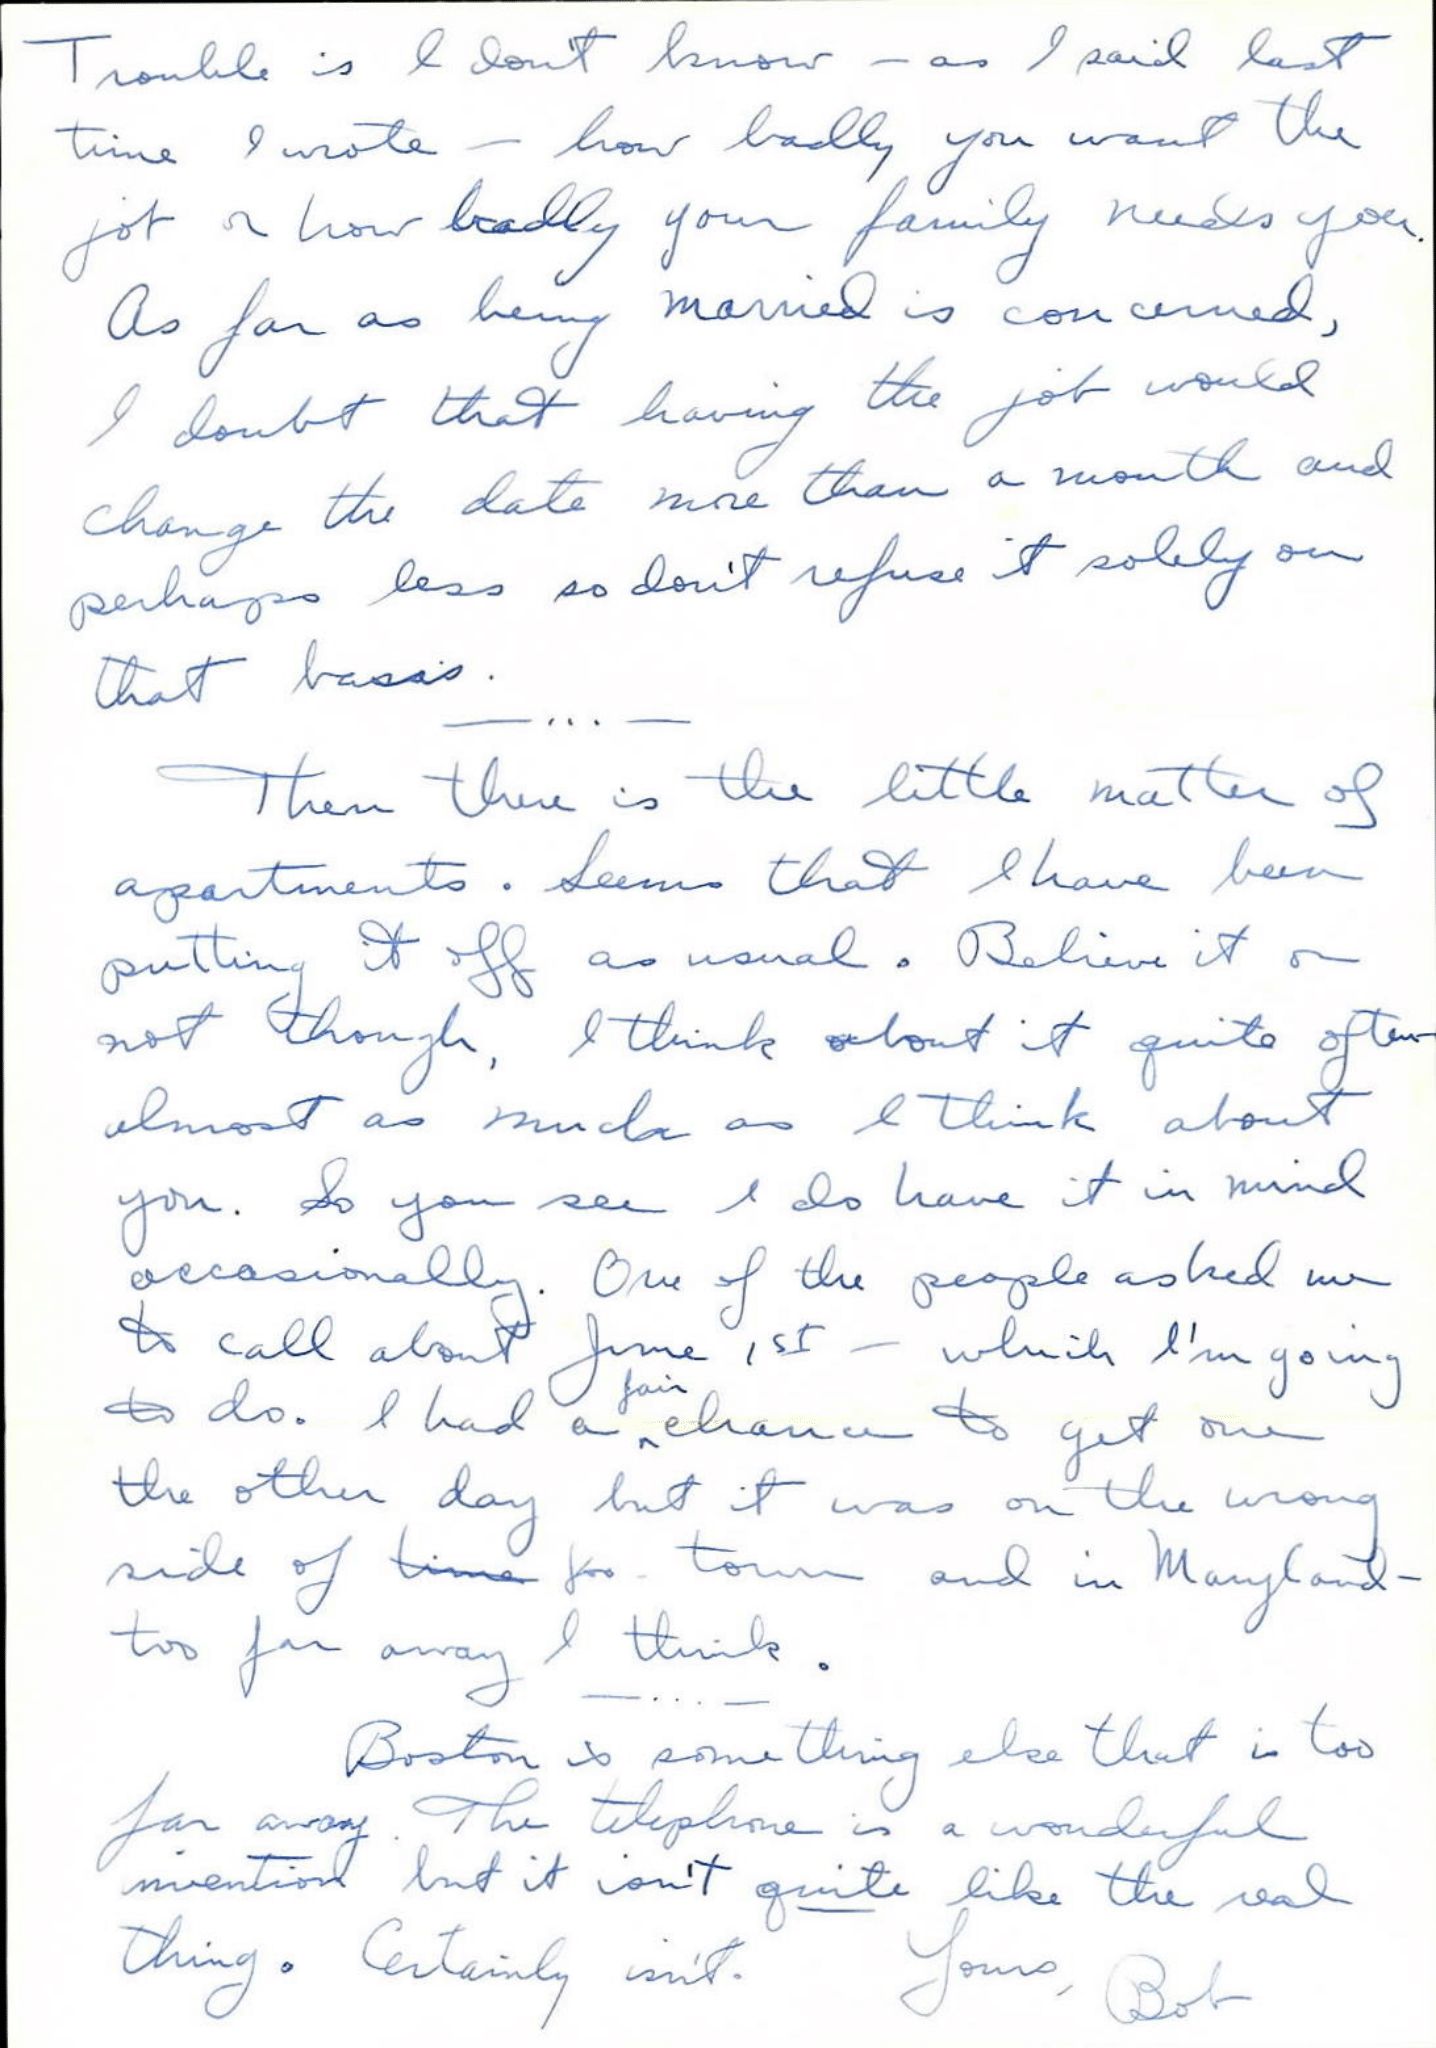 Trouble is I don't know - as I said last
time I wrote - how badly you want the
job or how badly your family needs you.
As far as being married is concerned,
I doubt that having the job would
change the date more than a month and
perhaps less so don't refuse it solely on
that basis.
— ... —
Then there is the little matter of
apartments. Seems that I have been
putting it off as usual. Believe it or
not though, I think about it quite often
almost as much as I think about
you. So you see I do have it in mind
occasionally. One of the people asked me
to call about June 1st - which I'm going
to do. I had a fair chance to get one
the other day but it was on the wrong
side of time town and in Maryland -
too far away I think.
— ... —
Boston is something else that is too
far away. The telephone is a wonderful
invention but it isn't quite like the real
thing. Certainly isn't. Yours, Bob